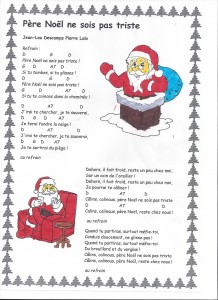 Père Noël ne sois pas triste
Jean-Lou Descamps Pierre Lalo
Refrain :
D G D
Père Noël ne sois pas triste
G D A7 D
Si tu tombes, si tu glisses !
D G D
Père Noël ne sois pas triste
G D A7 D
Si tu te coinces dans la cheminée !
D A7 D
J'irai te chercher, je te sauverai,
D
Je ferai fondre la neige !
D A7 D
J'irai te chercher, je te sauverai,
G D A7 D
Je te sortirai du piège !
au refrain
Dehors, il fait froid, reste un peu chez moi,
Sur un coin de l'oreiller !
Dehors, il fait froid, reste un peu chez moi,
Je pourrai te câliner !
D A7 D
Câline, calinoux, père Noël ne sois pas triste
D A7 D
Câline, calinoux, père Noël, reste chez nous !
au refrain
Quand tu partiras, surtout méfie-toi
Conduis doucement, ne glisse pas !
Quand tu partiras, surtout méfie-toi
Du brouillard et du verglas !
Câline, calinoux, père Noël ne sois pas triste
Câline, calinoux, père Noël, reste chez nous !
au refrain